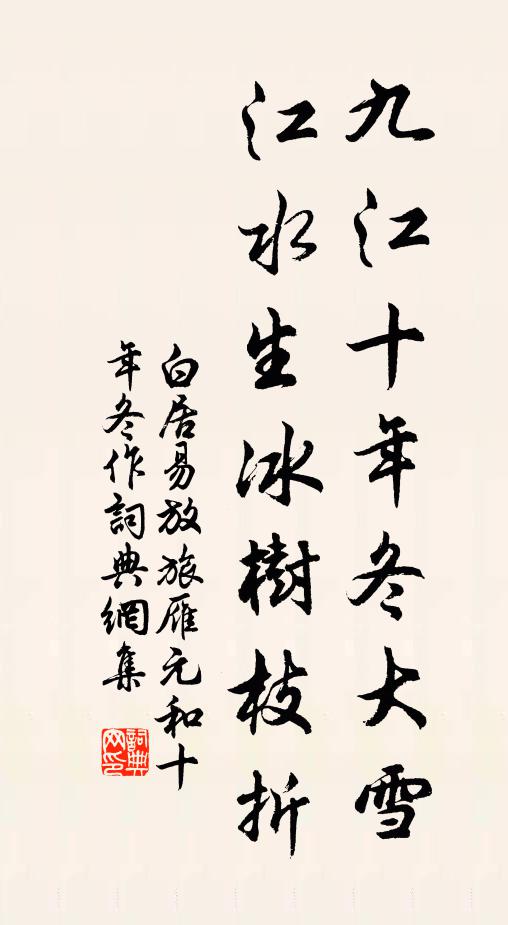 九江十年冬大雪
江水生冰樹枝折
白居易放旅雁元和十
年冬作詞典網集
詞典網印